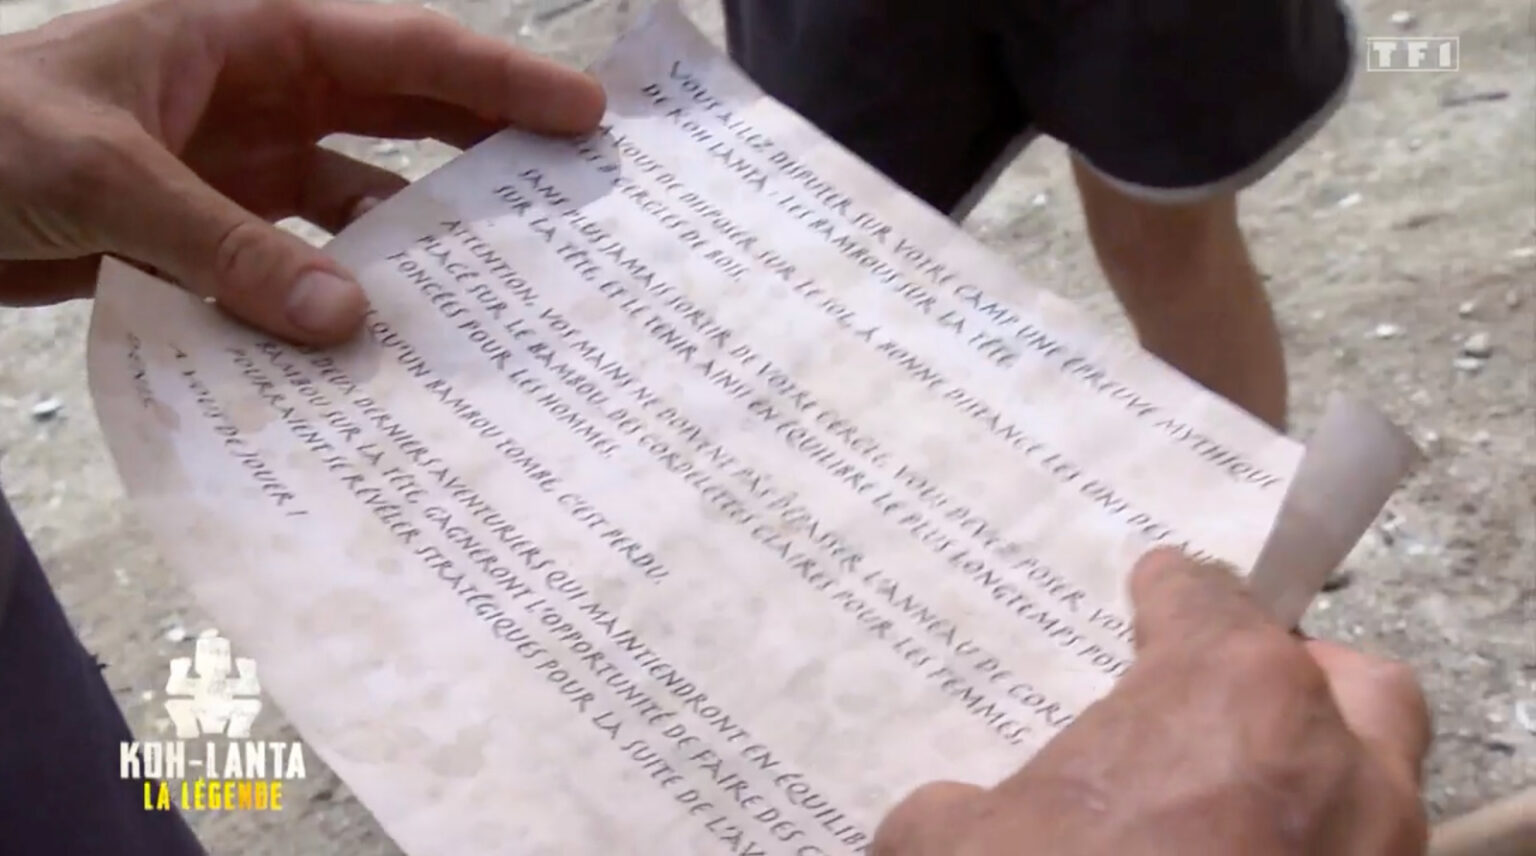 VOUS ALLEZ DISPUTER SUR VOTRE CAMP UNE ÉPREUVE MYTHIQUE
DE KOH LANTA : LES BAMBOUS SUR LA TÊTE
A VOUS DE DISPOSER SUR LE SOL, À BONNE DISTANCE LES UNS DES
LES 8 CERCLES DE BOIS.
SANS PLUS JAMAIS SORTIR DE VOTRE CERCLE, VOUS DEVEZ POSER
SUR LA TÊTE, ET LE TENIR AINSI EN ÉQUILIBRE LE PLUS LONGTEMPS
ATTENTION, VOS MAINS NE DOIVENT PAS DÉPASSER L'ANNEAU DE
PLACÉ SUR LE BAMBOU. DES CORDELETTES CLAIRES POUR LES FEMMES,
FONCÉES POUR LES HOMMES.
QU'UN BAMBOU TOMBE, C'EST PERDU.
DEUX DERNIERS AVENTURIERS QUI MAINTIENDRONT EN
BAMBOU SUR LA TÊTE, GAGNERONT L'OPPORTUNITÉ DE FAIRE DES
POURRAIENT SE RÉVÉLER STRATÉGIQUES POUR LA SUITE DE
A VOUS DE JOUER !
DENIS
TF1
KOH-LANTA
LA LÉGENDE